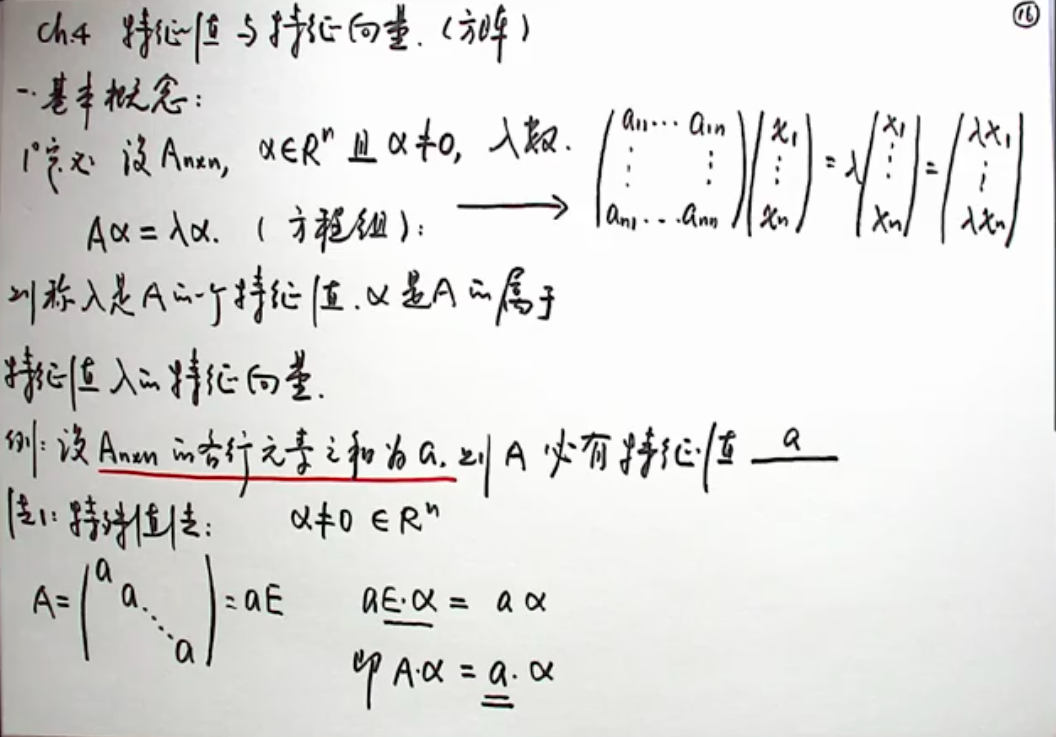 ⑯
ch.4 特征值与特征向量.(方阵)
一.基本概念:
1°定义 设 Aₙₓₙ, α∈Rⁿ 且 α≠0, λ数.
Aα=λα. (方程组):
⟶ (a₁₁⋯a₁ₙ ⋮ ⋮ aₙ₁⋯aₙₙ)(x₁ ⋮ xₙ)=λ(x₁ ⋮ xₙ)=(λx₁ ⋮ λxₙ)
则称λ是A的一个特征值.α是A的属于
特征值λ的特征向量.
例:设Aₙₓₙ的各行元素之和为a.则A必有特征值 a
法1:特殊值法: α≠0∈Rⁿ
A=(a a ⋱ a)=aE aE·α = aα
即 A·α = a·α